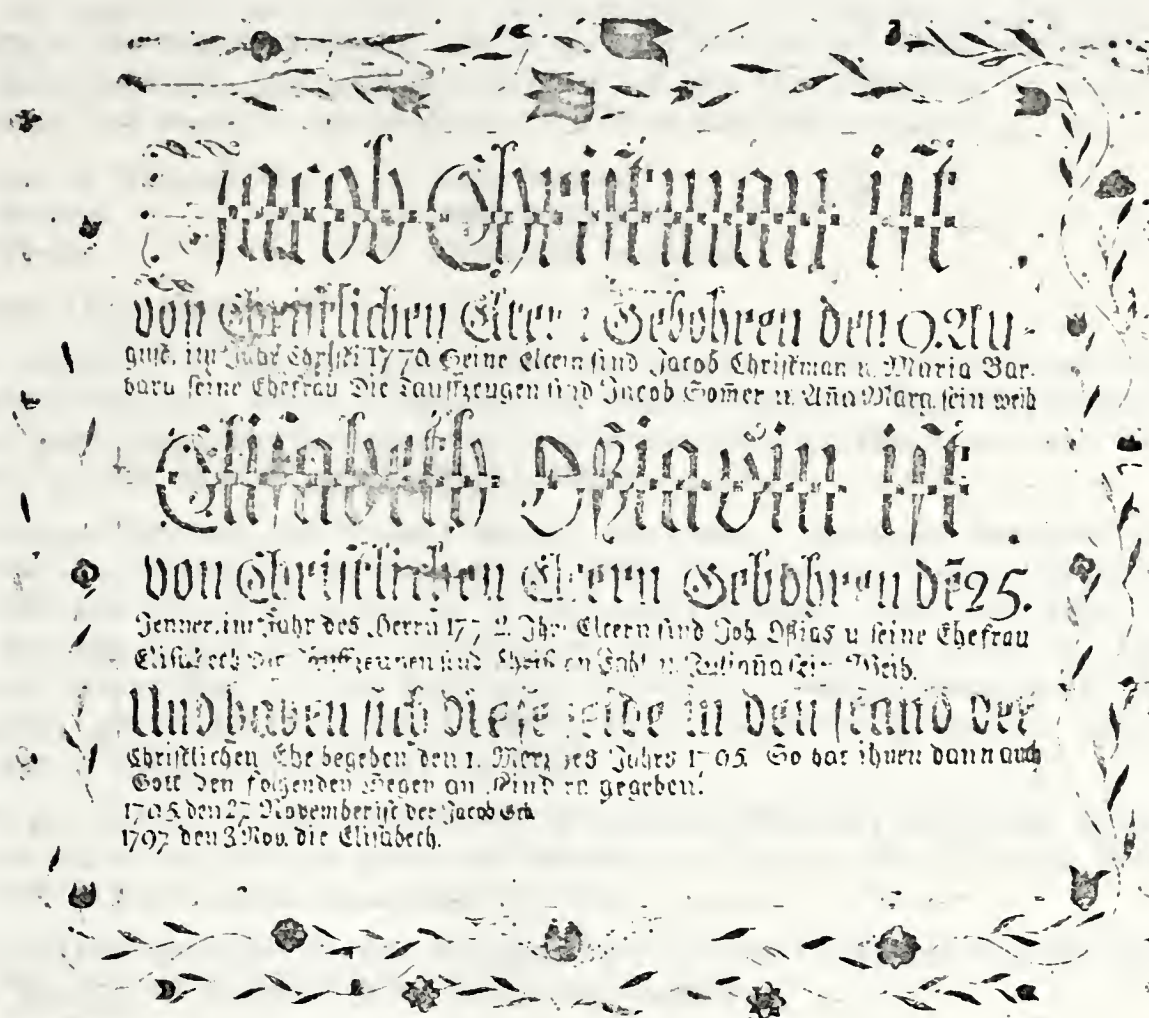 Jacob Christman ist
von Christlichen Gebohren den 9. Au-
gust, im Jahr Christi Seine Eltern sind Jacob Christman u. Maria Bar-
bara seine Ehefrau Die Tauffzeugen sind Jacob Som̄er u. An̄a Marg. sein weib
Elisabeth ist
von Christlichen Eltern Gebohren dē 25.
Jenner, im Jahr des Herrn 1772. Ihr Eltern sind Joh. u seine Ehefrau
Elisabeth Die Tauffzeugen sind u. Julian̄a sein Weib.
Und haben sich diese beide in den stand der
Christlichen Ehe begeben den 1. Merz des Jahrs So hat ihnen dann auch
Gott den folgenden Segen an gegeben.
den 27. November ist der Jacob Geb.
1797 den 3 Nov. die Elisabeth.